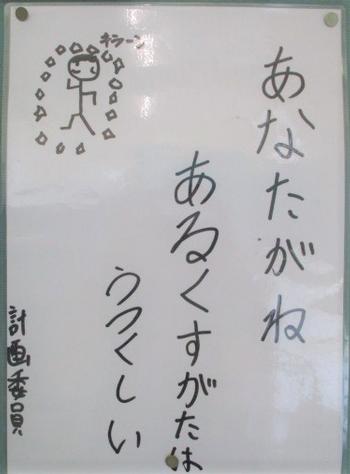 キラーン
あなたがね
あるくすがたは
うつくしい
計画委員